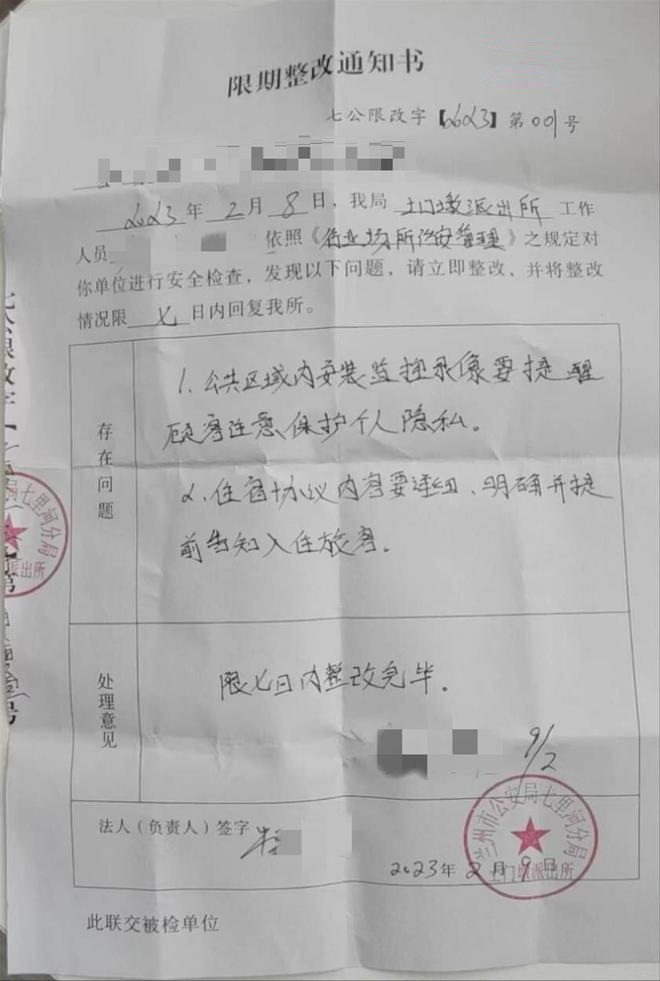 限期整改通知书
七公限改字【2023】第001号
2023年2月8日，我局土门墩派出所工作
人员 依照《行业场所治安管理》之规定对
你单位进行安全检查，发现以下问题，请立即整改，并将整改
情况限七日内回复我所。
存在问题
1.公共区域内安装监控录像要提醒
顾客注意保护个人隐私。
2.住宿协议内容要详细、明确并提
前告知入住旅客。
处理意见
限七日内整改完毕。
9/2
法人（负责人）签字
2023年2月9日
兰州市公安局七里河分局
土门墩派出所
此联交被检单位
局七里河分局
派出所